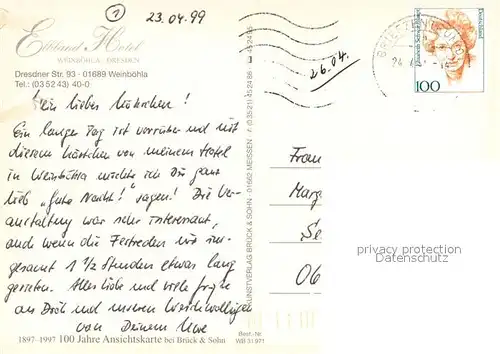 1
23.04.99
Elbland Hotel
WEINBÖHLA · DRESDEN
Dresdner Str. 93 · 01689 Weinböhla
Tel.: (03 52 43) 40-0
26.04.
Mein liebes
Ein langer Tag ist vorrüber und mit
diesem Kärtchen von meinem Hotel
in Weinböhla möchte ich Dir ganz
lieb "gute Nacht!" sagen! Die Ver-
anstaltung war sehr interessant,
auch wenn die Festreden mit ins-
gesamt 1 1/2 Stunden etwas lang
gerieten. Alles Liebe und viele Grüße
an Dich und unseren
von Deinem Uwe
1897-1997 100 Jahre Ansichtskarte bei Brück & Sohn
KUNSTVERLAG BRÜCK & SOHN · 01662 MEISSEN
Best.-Nr.
WB 31 971
Deutschland
100
Frau
Marg
Se
06
privacy protection
privacy protection